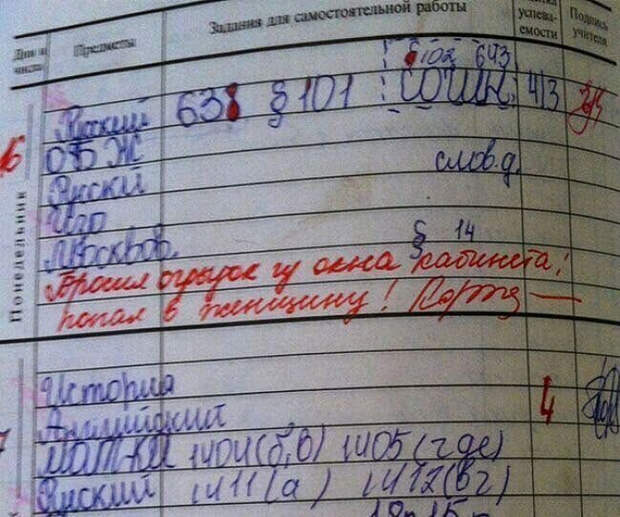 Дни и числа Предметы Задания для самостоятельной работы успева-емости Подпись учителя
§102 643
Русский 638 §101 СОЧИН. 4/3
16 Понедельник
ОБЖ
Русский слов.д.
Изо
Москвов. § 14
Бросил огрызок из окна кабинета!
попал в женщину!
История
Английский 4
МАТ-КА 1404(б,в) 1405(где)
Русский 1411(а) 1412(вг)